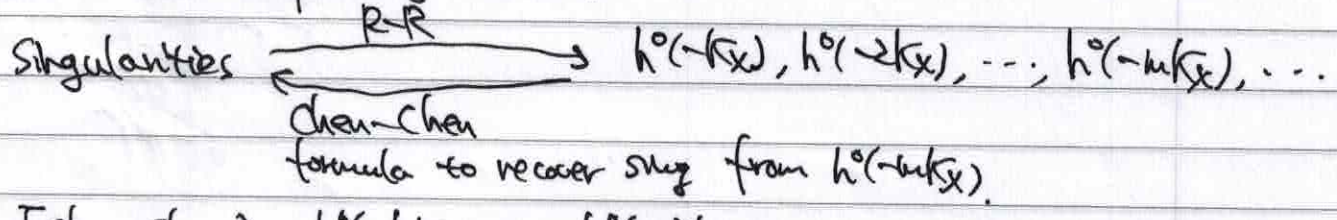 R-R
Singularities ⇄ h⁰(-Kx), h⁰(-2Kx), ..., h⁰(-mKx), ...
Chen-Chen
formula to recover sing from h⁰(-mKx).